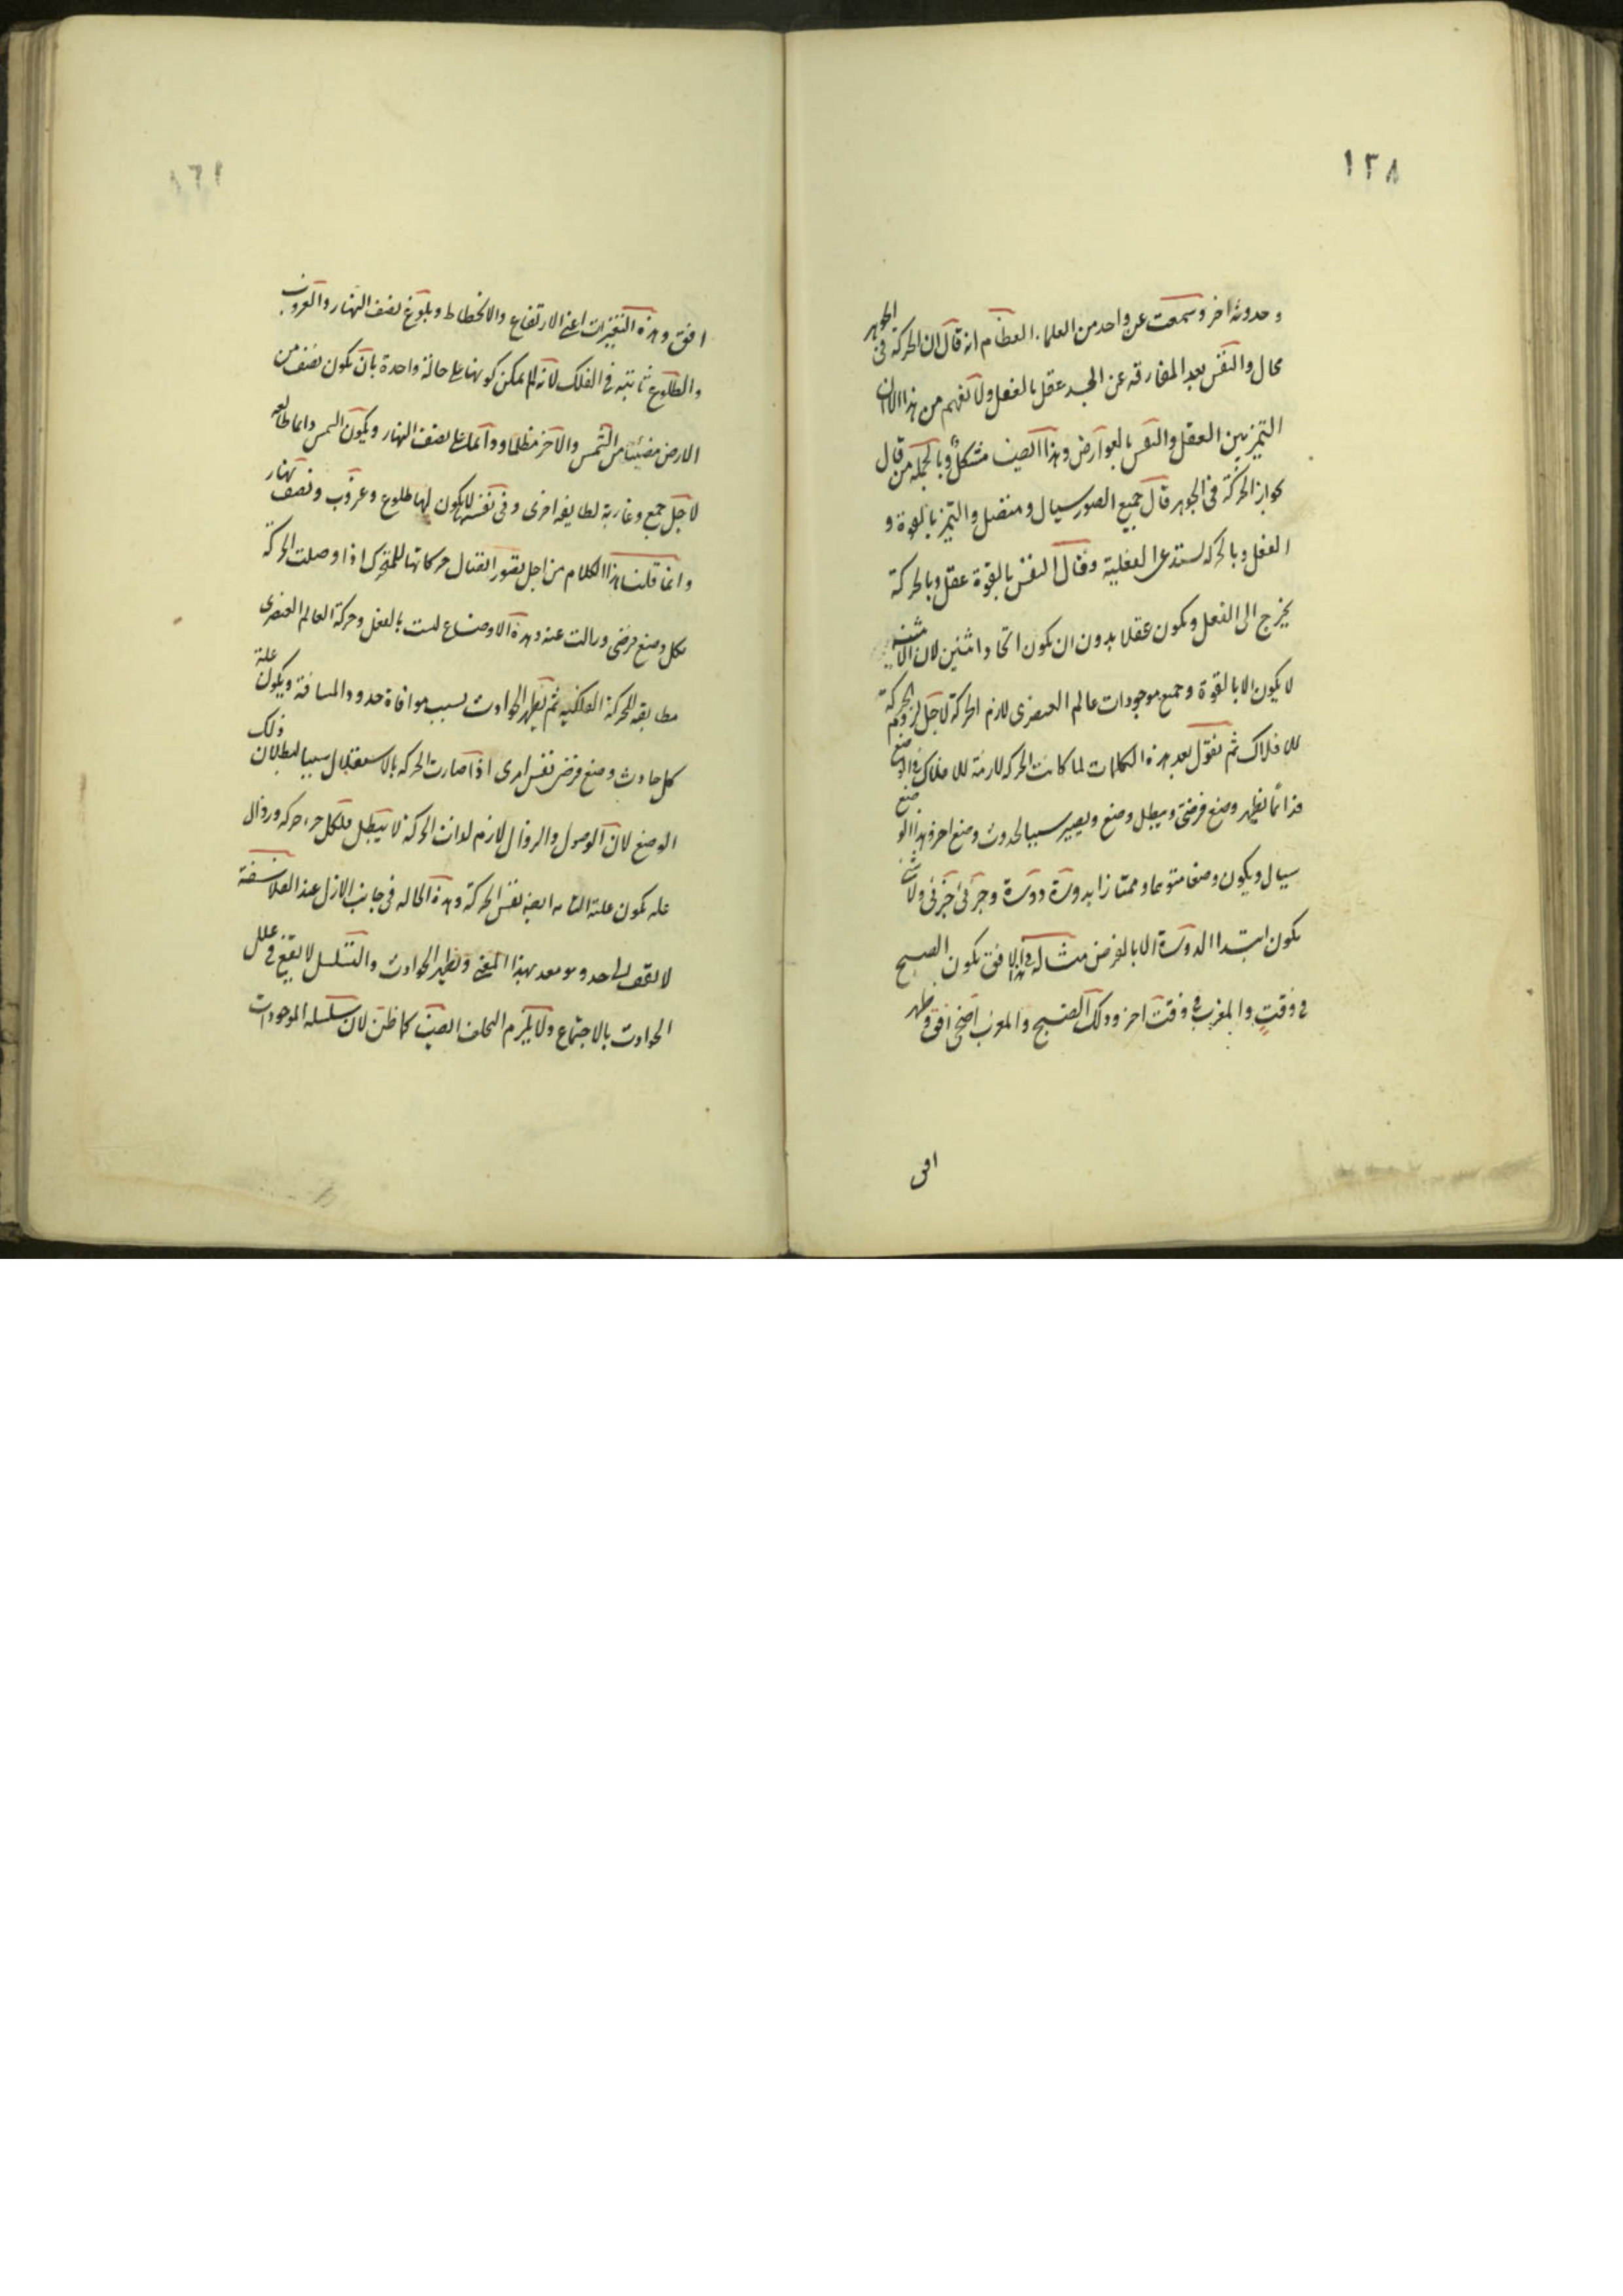 ١٣٨
وحدوثه اخر وسمعت عن واحد من العلماء العظام انه قال ان الحركة فى الجوهر
محال والنفس بعد المفارقه عن الجسد عقل بالفعل ولا نفهم من هذا الا ان
التميز بين العقل والنفس بالعوارض وهذا ايضا مشكل وبالجمله من قال
بجواز الحركة فى الجوهر قال جميع الصور سيال ومتصل والتميز بالقوة و
الفعل وبالحركه يستدعى الفعلية وقال النفس بالقوة عقل وبالحركة
يخرج الى الفعل ويكون عقلا بدون ان يكون اتحاد اثنين لان الاثنينية
لا يكون الا بالقوة وجميع موجودات عالم العنصرى لازم الحركة لاجل لزوم الحركة
للافلاك ثم نقول بعد هذه الكلمات لما كانت الحركه لازمة للافلاك فى الوضع
فدائما يظهر وضع فرضى ويبطل وضع ويصير سببا لحدوث وضع اخر وهذا الوضع
سيال ويكون وضعا متنوعا وممتازا بدورة دورة وجزئى جزئى ولا شك
يكون ابتداء الدورة الا بالفرض مثاله فى هذا الافق يكون الصبح
فى وقت والمغرب فى وقت اخر وذلك الصبح والمغرب اضحى افق وظهر
افق
افق وهذه التغيرات اعنى الارتفاع والانحطاط وبلوغ نصف النهار والغروب
والطلوع ثابته فى الفلك لانه لم يمكن كونها على حالة واحدة بان يكون نصف من
الارض مضيئا من الشمس والآخر مظلما ودائما على نصف النهار ويكون الشمس دائما طالعه
لاجل جمع وغاربة لطايفه اخرى وفى نفسها لا يكون لها طلوع وغروب ونصف نهار
وانما قلنا هذا الكلام من اجل تصور اتصال حركاتها للمتحرك اذا وصلت الحركة
بكل وضع فرضى وزالت عنه وهذه الاوضاع ليست بالفعل وحركة العالم العنصرى
مطابقه للحركة الفلكيه ثم يظهر الحوادث بسبب موافاة حدود المسافة ويكون علة
كل حادث وضع فرضى نفس امرى اذا صارت الحركه بالاستقلال سببا لبطلان ذلك
الوضع لان الوصول والزوال لازم لذات الحركة لا يبطل فلكل جزء حركه وزوال
عله يكون علته التامه ايضه نفس الحركة وهذه الحاله فى جانب الازل عند الفلاسفة
لا يقف الى حد وهو معد بهذا المعنى ويظهر الحوادث والتسلسل لا يقع فى علل
الحوادث بالاجتماع ولا يلزم التخلف ايضا كما ظن لان سلسله الموجودات